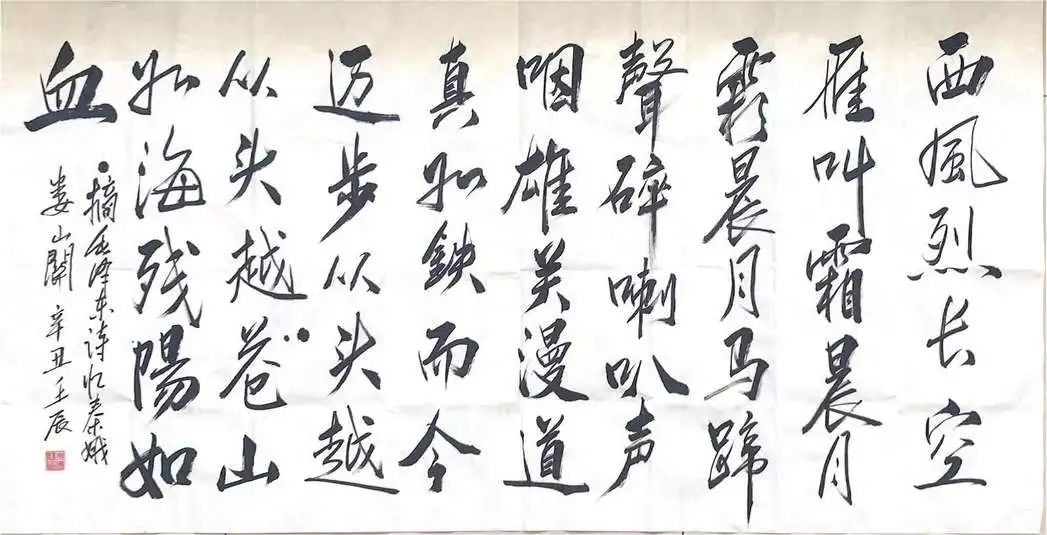 西風烈长空
雁叫霜晨月
霜晨月马蹄
聲碎喇叭声
咽雄关漫道
真如鉄而今
迈步从头越
从头越苍山
如海残陽如
血
摘毛泽东诗忆秦娥
娄山關 辛丑壬辰